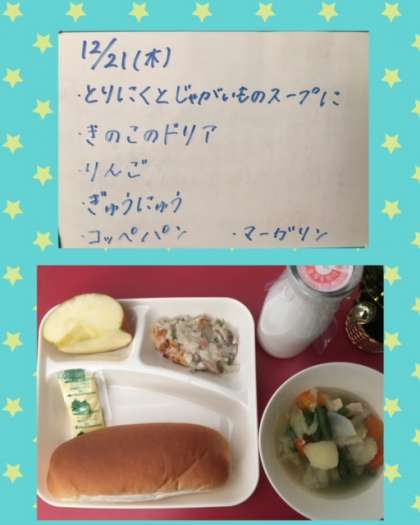 12/21(木)
・とりにくとじゃがいものスープに
・きのこのドリア
・りんご
・ぎゅうにゅう
・コッペパン ・マーガリン